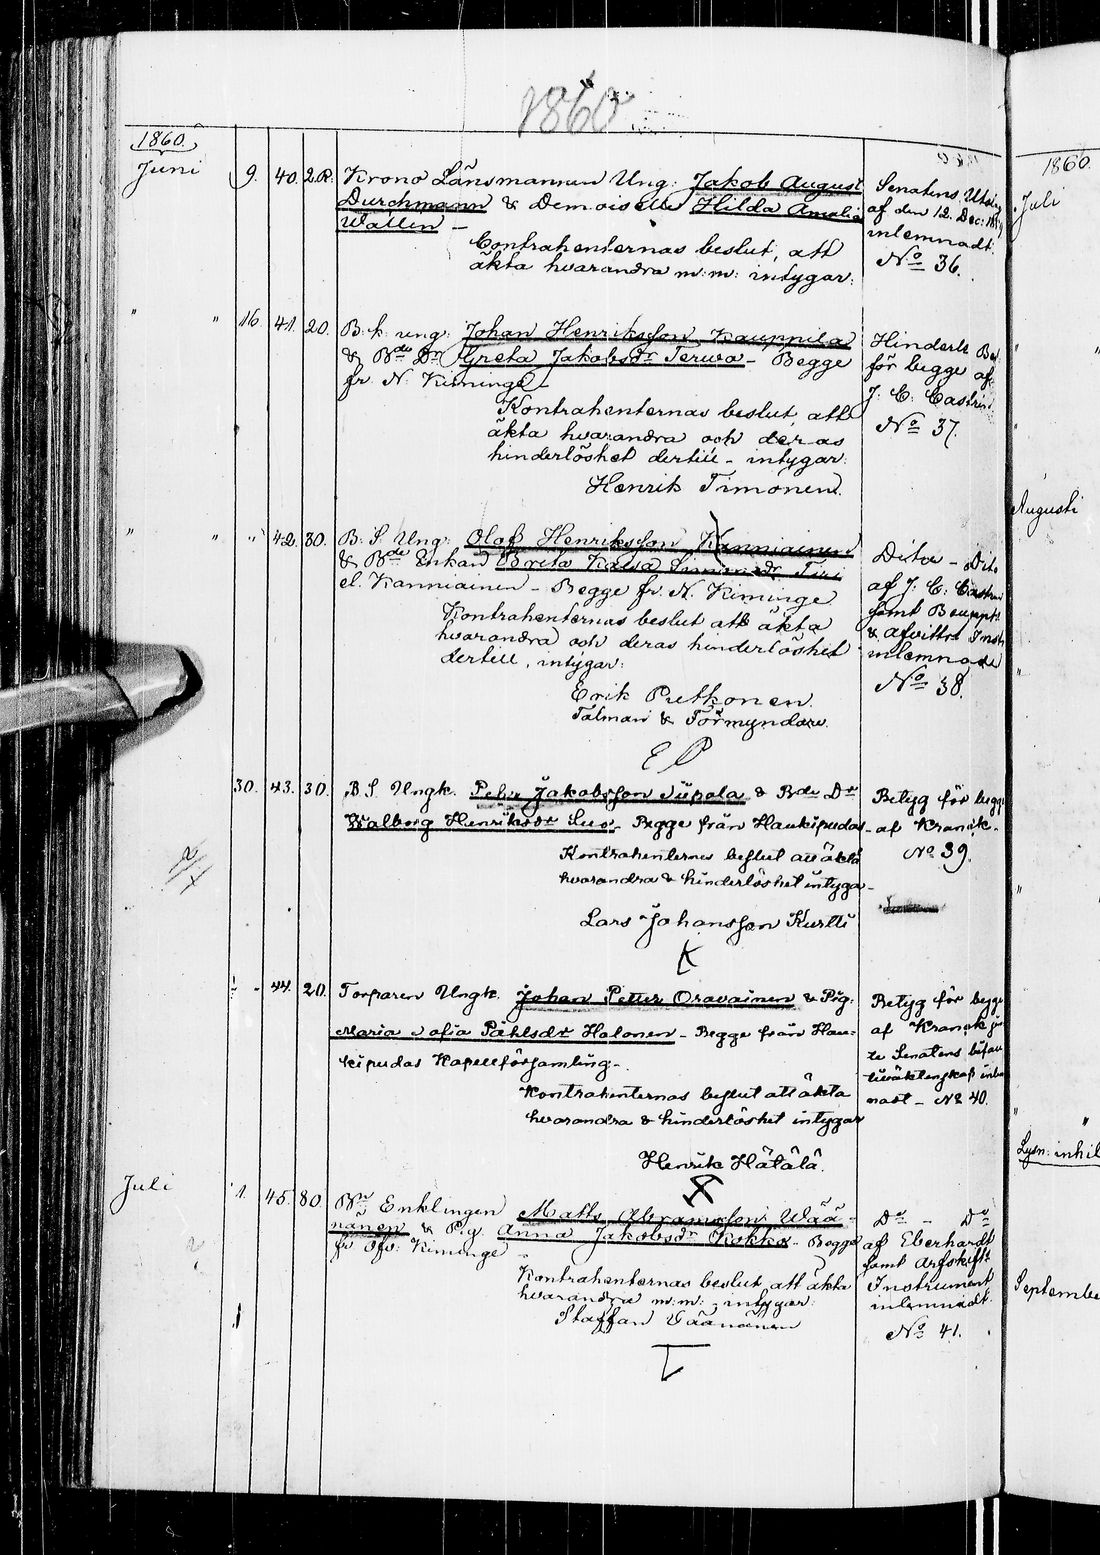 1860
1860.
Juni 9. 40. 2.R. Krono Länsmannen Ung: Jakob August
Durchmann & Demoiselle Hilda Amalia
Wallin –
Contrahenternas beslut, att
äkta hvarandra m:m: intygar:
Senatens Utslag
af den 12. Dec:
inlemnadt.
No 36.
" " 16. 41. 20. B. k. ung: Johan Henriksson Kauppila
& Bde Dr Greta Jakobsdr Terwa – Begge
fr. N. Kiminge –
Kontrahenternas beslut, att
äkta hvarandra och deras
hinderlöshet dertill – intygar:
Henrik Timonen.
Hinderl: Bet.
för begge af
J. C. Castrén
No 37.
" " " 42. 80. B. S. Ung: Olof Henriksson Kanniainen
& Bde Enkan Brita Kaisa Simonsdr
el. Kanniainen – Begge fr. N. Kiminge
Kontrahenternas beslut att äkta
hvarandra och deras hinderlöshet
dertill, intygar:
Erik Putkonen.
Talman & Förmyndare.
E P
Ditto – Ditto
af J. C. Castrén
samt Bouppt:
& afvittr: Instr
inlemnade
No 38.
30. 43. 30. B. S. Ungk. Pehr Jakobsson Siipola & Bde Dr
Walborg Henriksdr Suo – Begge från Haukipudas –
Kontrahenternes beslut att äkta
hvarandra & hinderlöshet intyga –
Lars Johansson Kurtti
K
Betyg för begge
af Kranck –
No 39.
" - 44. 20. Torparen Ungk. Johan Petter Oravainen & Pig:
Maria Sofia Påhlsdr Halonen – Begge från Hau-
kipudas Kapellförsamling –
Kontrahenternas beslut att äkta
hvarandra & hinderlöshet intygar
Henrik Hätälä.
Betyg för begge
af Kranck
te Senatens bifall
till äktenskap inlem
nadt – No 40.
Juli 1. 45. 80. Bn Enklingen Matts Abramsson Wää-
nänen & Pig. Anna Jakobsdr Kokko – Begge
fr. Öfv: Kiminge –
Kontrahenternas beslut att äkta
hvarandra m:m: intygar:
Staffan Väänänen
Do – Do
af Eberhardt
samt Arfskifts
Instrument
inlemnadt.
No 41.
1860.
Juli
Augusti
Lysn: inhib
Septembe